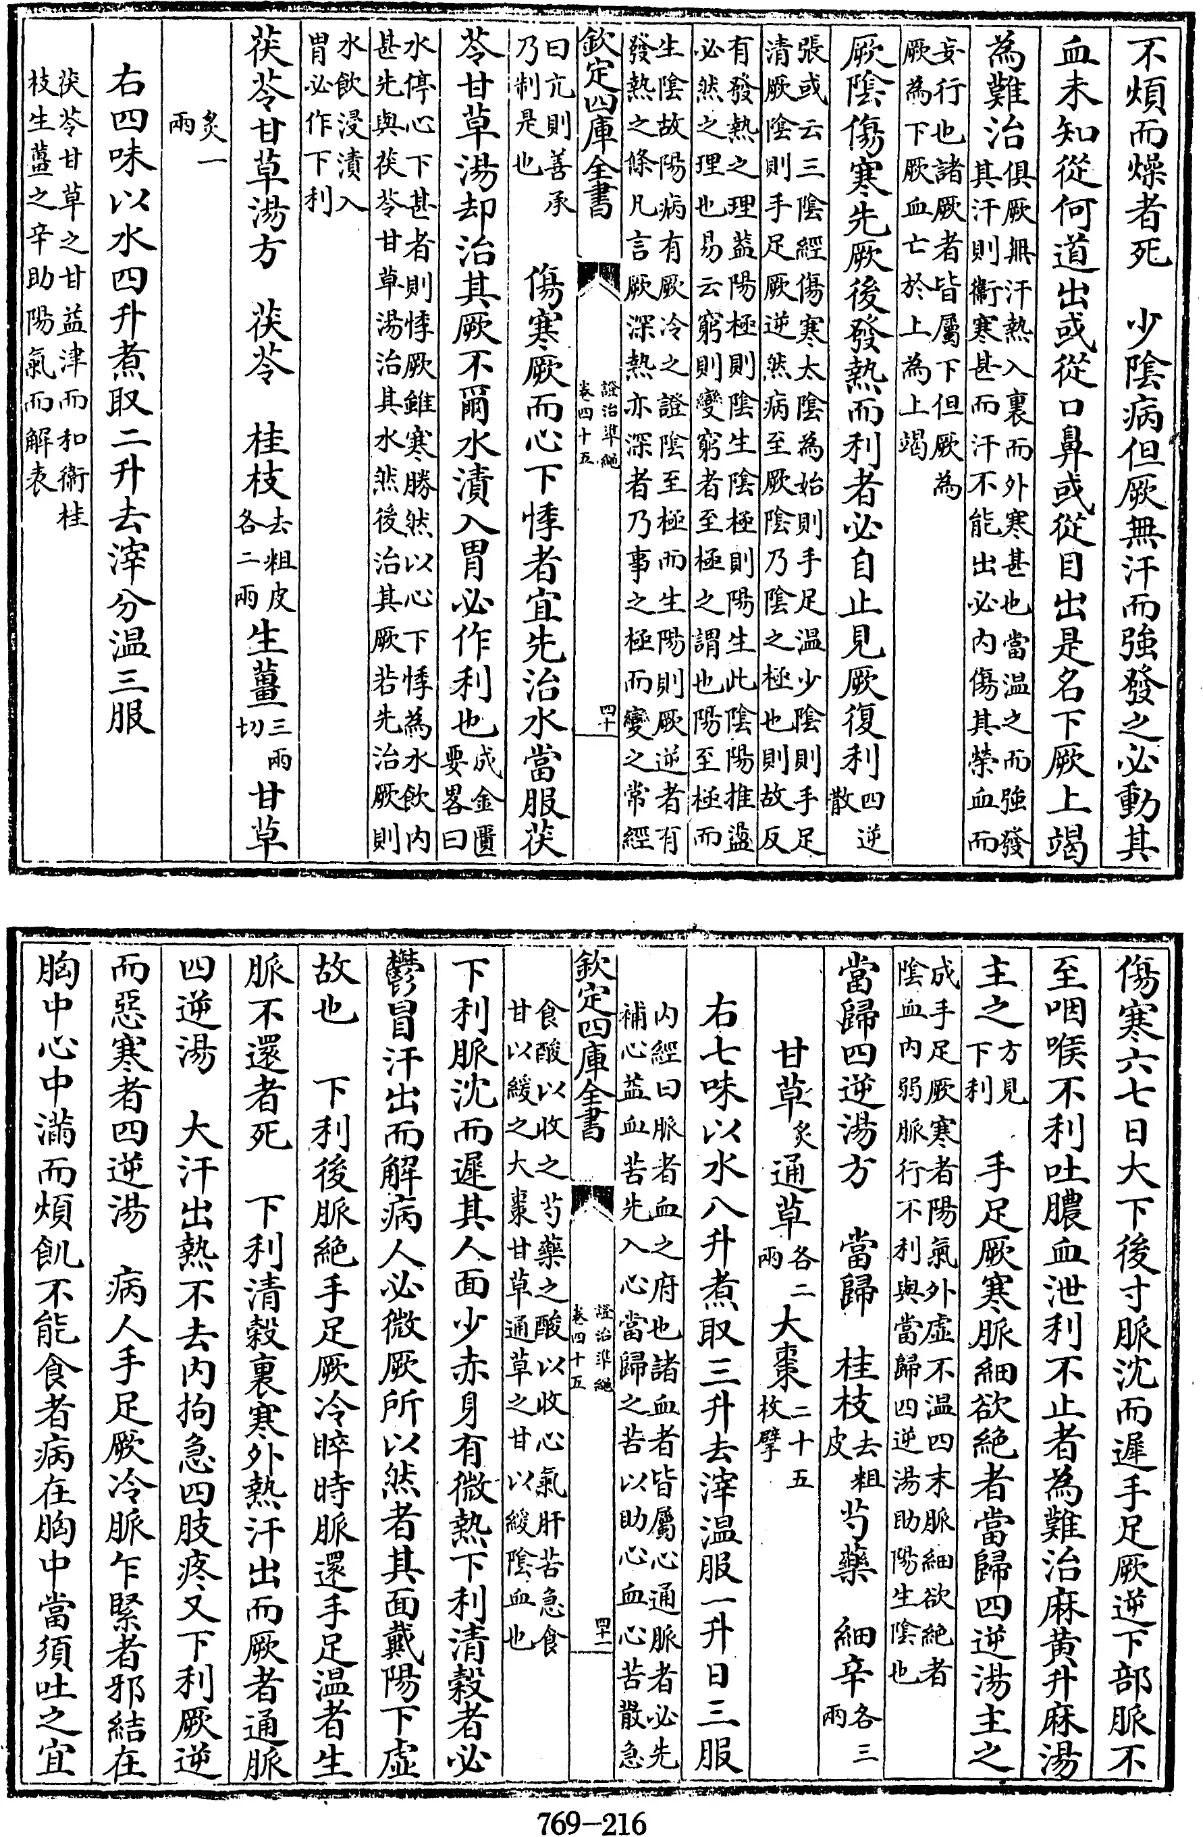 不煩而燥者死　少陰病但厥無汗而強發之必動其
血未知從何道出或從口鼻或從目出是名下厥上竭
為難治俱厥無汗熱入裏而外寒甚也當温之而強發
其汗則衞寒甚而汗不能出必内傷其榮血而
妄行也諸厥者皆屬下但厥為
厥為下厥血亡於上為上竭
厥陰傷寒先厥後發熱而利者必自止見厥復利四逆
散
張或云三陰經傷寒太陰為始則手足温少陰則手足
清厥陰則手足厥逆然病至厥陰乃陰之極也則故反
有發熱之理葢陽極則陰生陰極則陽生此陰陽推盪
必然之理也易云窮則變窮者至極之謂也陽至極而
生陰故陽病有厥冷之證陰至極而生陽則厥逆者有
發熱之條凡言厥深熱亦深者乃事之極而變之常經
欽定四庫全書
證治準繩
卷四十五
四十
曰亢則善承
乃制是也
傷寒厥而心下悸者宜先治水當服茯
苓甘草湯却治其厥不爾水漬入胃必作利也成金匱
要畧曰
水停心下甚者則悸厥雖寒勝然以心下悸為水飲内
甚先與茯苓甘草湯治其水然後治其厥若先治厥則
水飲浸漬入
胃必作下利
茯苓甘草湯方　茯苓　桂枝去粗皮
各二兩生薑三兩
切甘草
炙一
兩
右四味以水四升煮取二升去滓分温三服
茯苓甘草之甘益津而和衞桂
枝生薑之辛助陽氣而解表
傷寒六七日大下後寸脈沈而遲手足厥逆下部脈不
至咽喉不利吐膿血泄利不止者為難治麻黄升麻湯
主之方見
下利　手足厥寒脈細欲絶者當歸四逆湯主之
成手足厥寒者陽氣外虛不温四末脈細欲絶者
陰血内弱脈行不利與當歸四逆湯助陽生陰也
當歸四逆湯方　當歸　桂枝去粗
皮芍藥　細辛各三
兩
甘草炙通草各二
兩大棗二十五
枚擘
右七味以水八升煮取三升去滓温服一升日三服
内經曰脈者血之府也諸血者皆屬心通脈者必先
補心益血苦先入心當歸之苦以助心血心苦散急
欽定四庫全書
證治準繩
卷四十五
四十一
食酸以收之芍藥之酸以收心氣肝苦急食
甘以緩之大棗甘草通草之甘以緩陰血也
下利脈沈而遲其人面少赤身有微熱下利清穀者必
鬱冒汗出而解病人必微厥所以然者其面戴陽下虛
故也　下利後脈絶手足厥冷晬時脈還手足温者生
脈不還者死　下利清穀裏寒外熱汗出而厥者通脈
四逆湯　大汗出熱不去内拘急四肢疼又下利厥逆
而惡寒者四逆湯　病人手足厥冷脈乍緊者邪結在
胸中心中滿而煩飢不能食者病在胸中當須吐之宜
769-216